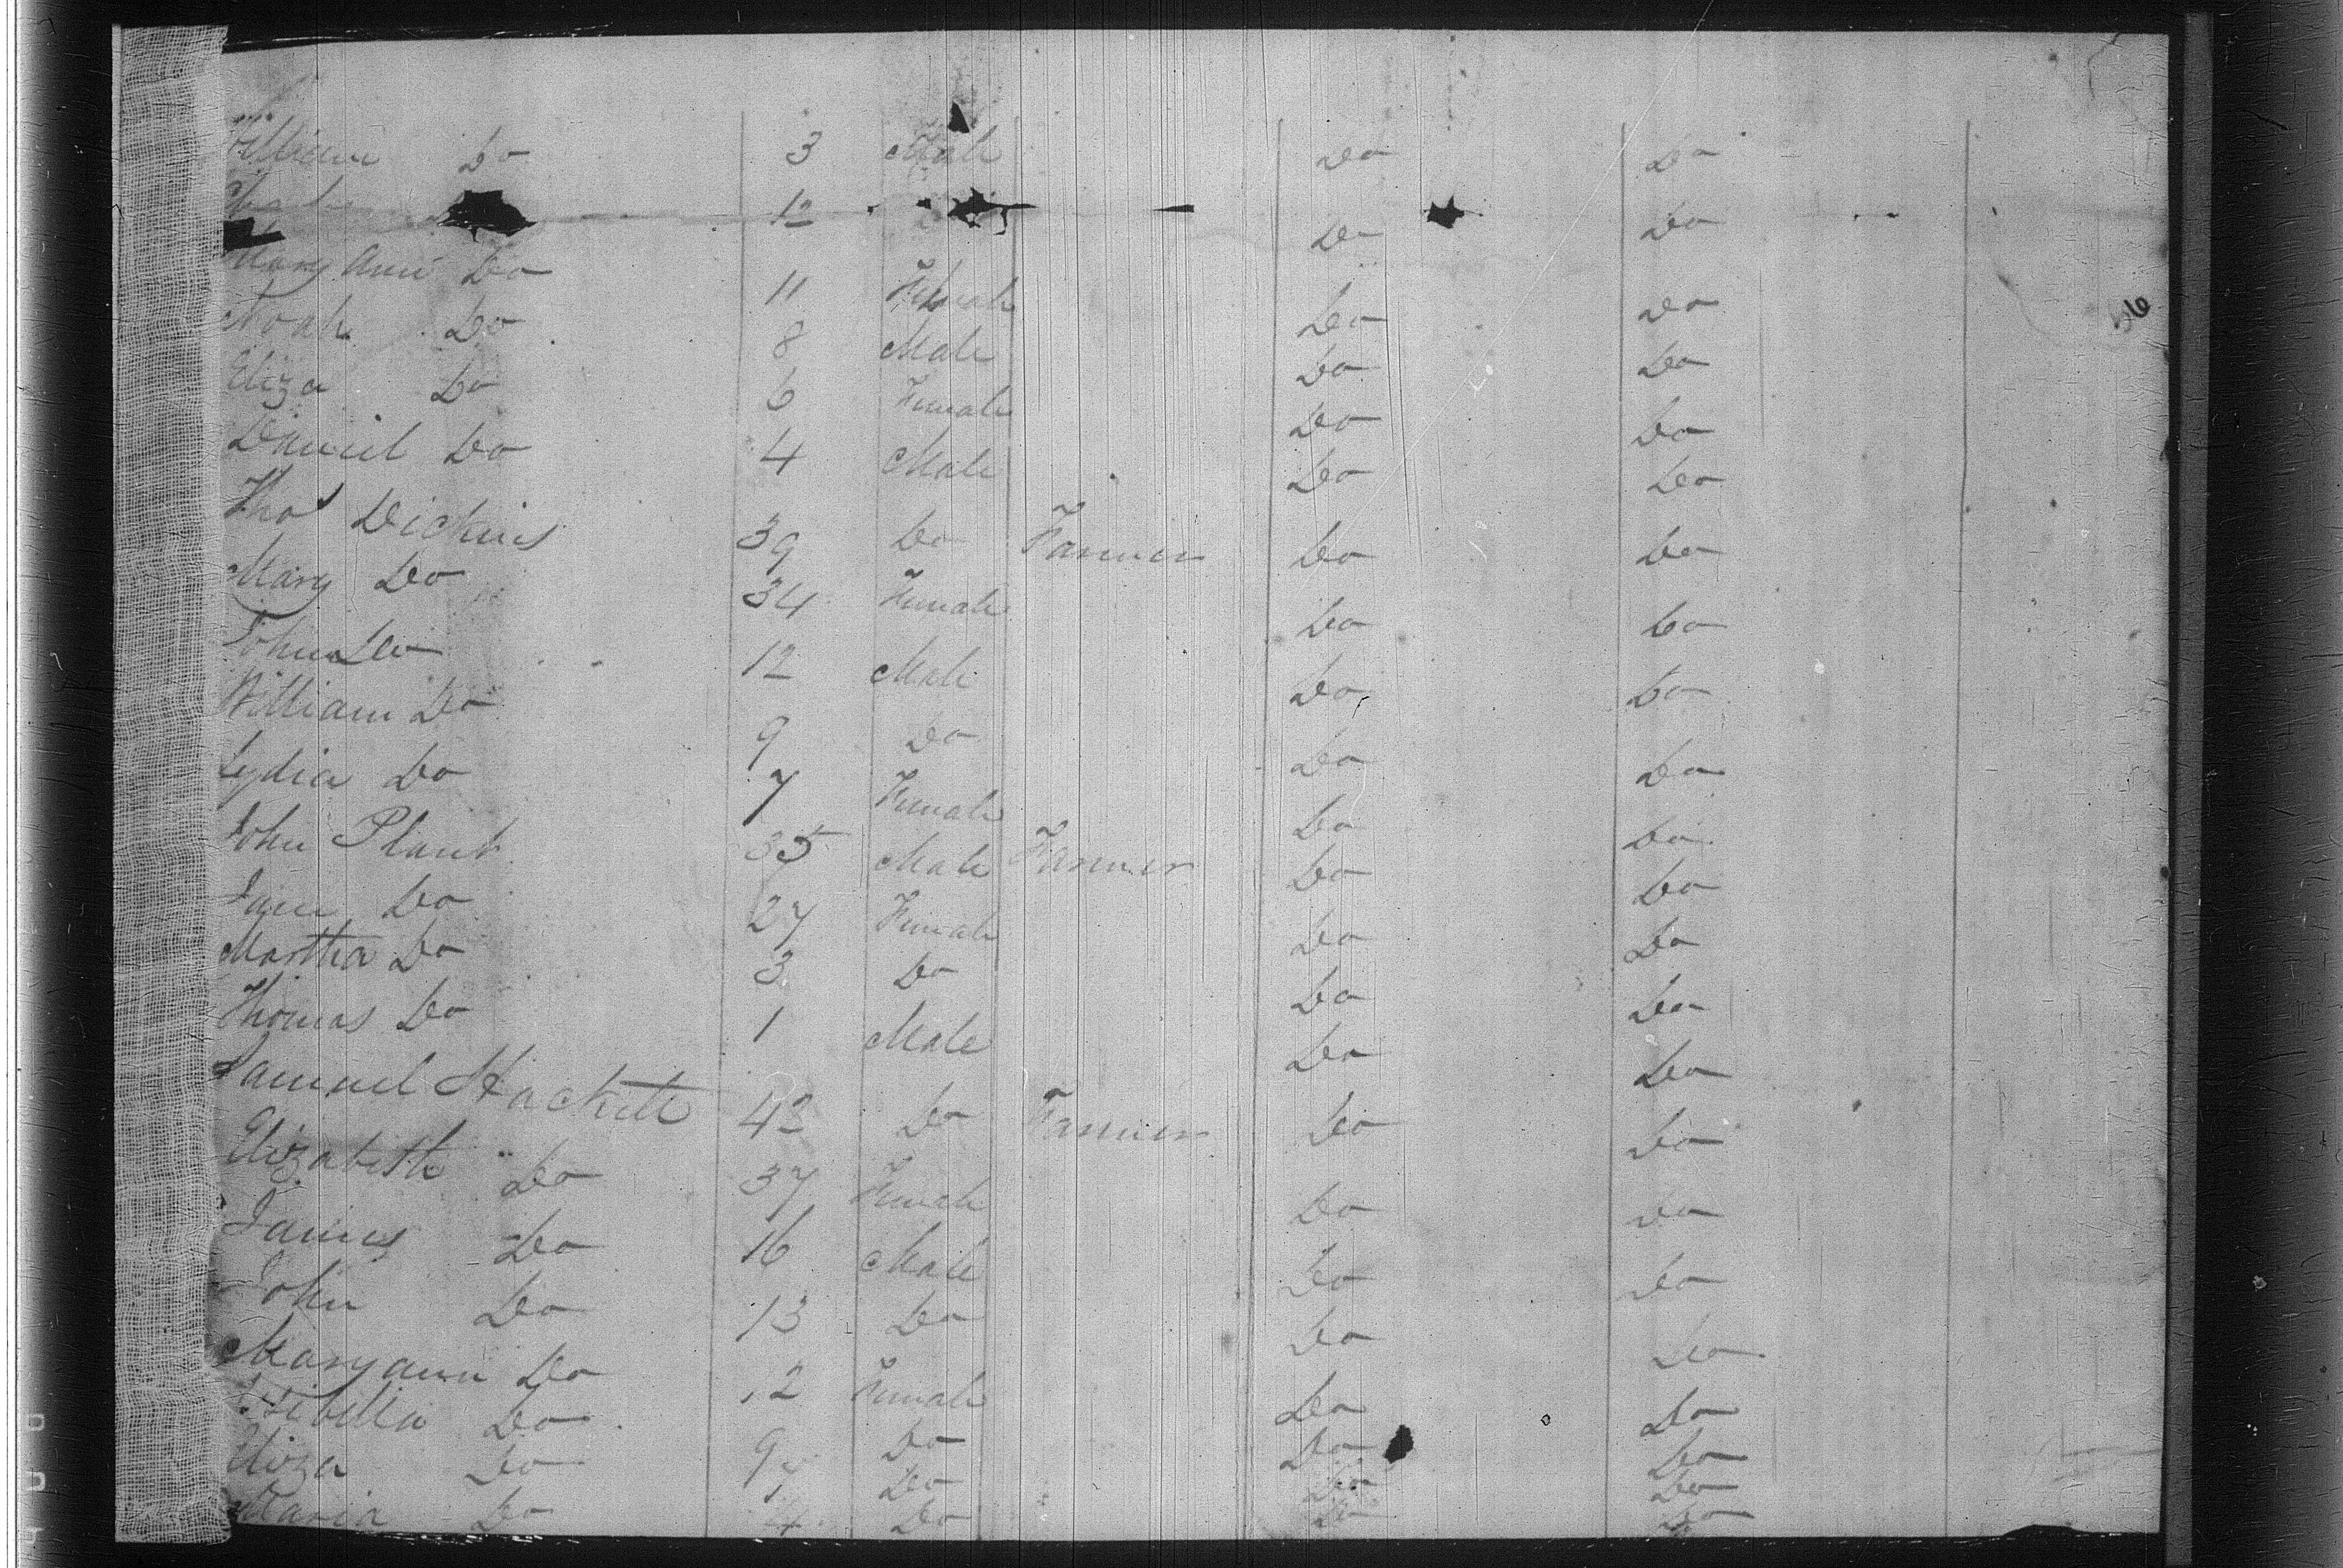 William Do 3 Male Do Do
12 Do Do
Mary Ann Do 11 Female Do Do
Noah Do 8 Male Do Do
Eliza Do 6 Female Do Do
Daniel Do 4 Male Do Do
Thos Dickins 39 Do Farmer Do Do
Mary Do 34 Female Do Do
John Do 12 Male Do Do
William Do 9 Do Do Do
Lydia Do 7 Female Do Do
John Plant 35 Male Farmer Do Do
Jane Do 27 Female Do Do
Martha Do 3 Do Do Do
Thomas Do 1 Male Do Do
Samuel Hackett 42 Do Farmer Do Do
Elizabeth Do 37 Female Do Do
James Do 16 Male Do Do
John Do 13 Do Do Do
Mary ann Do 12 Female Do Do
Isibella Do 9 Do Do Do
Eliza Do Do Do Do
Maria Do 4 Do Do Do